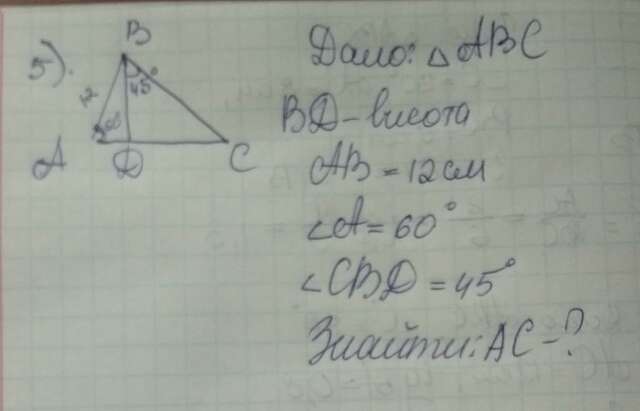 5).
B
12
45°
60°
A
D
C
Дано: △ABC
BD - висота
AB = 12 см
∠A = 60°
∠CBD = 45°
Знайти: AC - ?